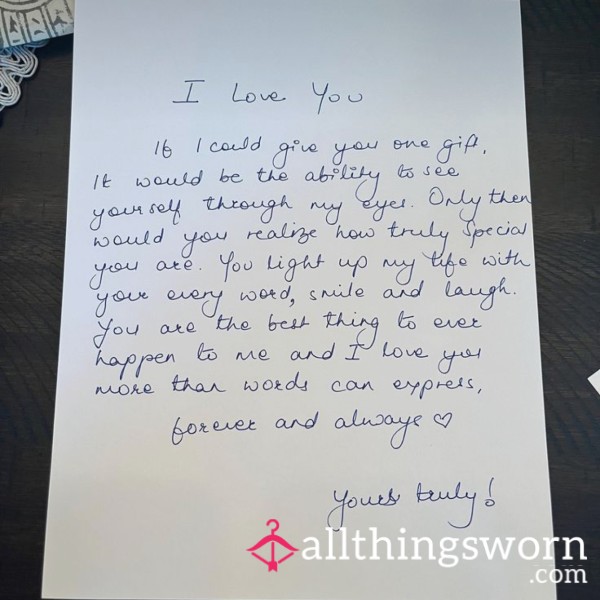 I Love You
If I could give you one gift,
It would be the ability to see
yourself through my eyes. Only then
would you realize how truly special
you are. You light up my life with
your every word, smile and laugh.
You are the best thing to ever
happen to me and I love you
more than words can express,
forever and always ♡
Yours truly!
allthingsworn
.com